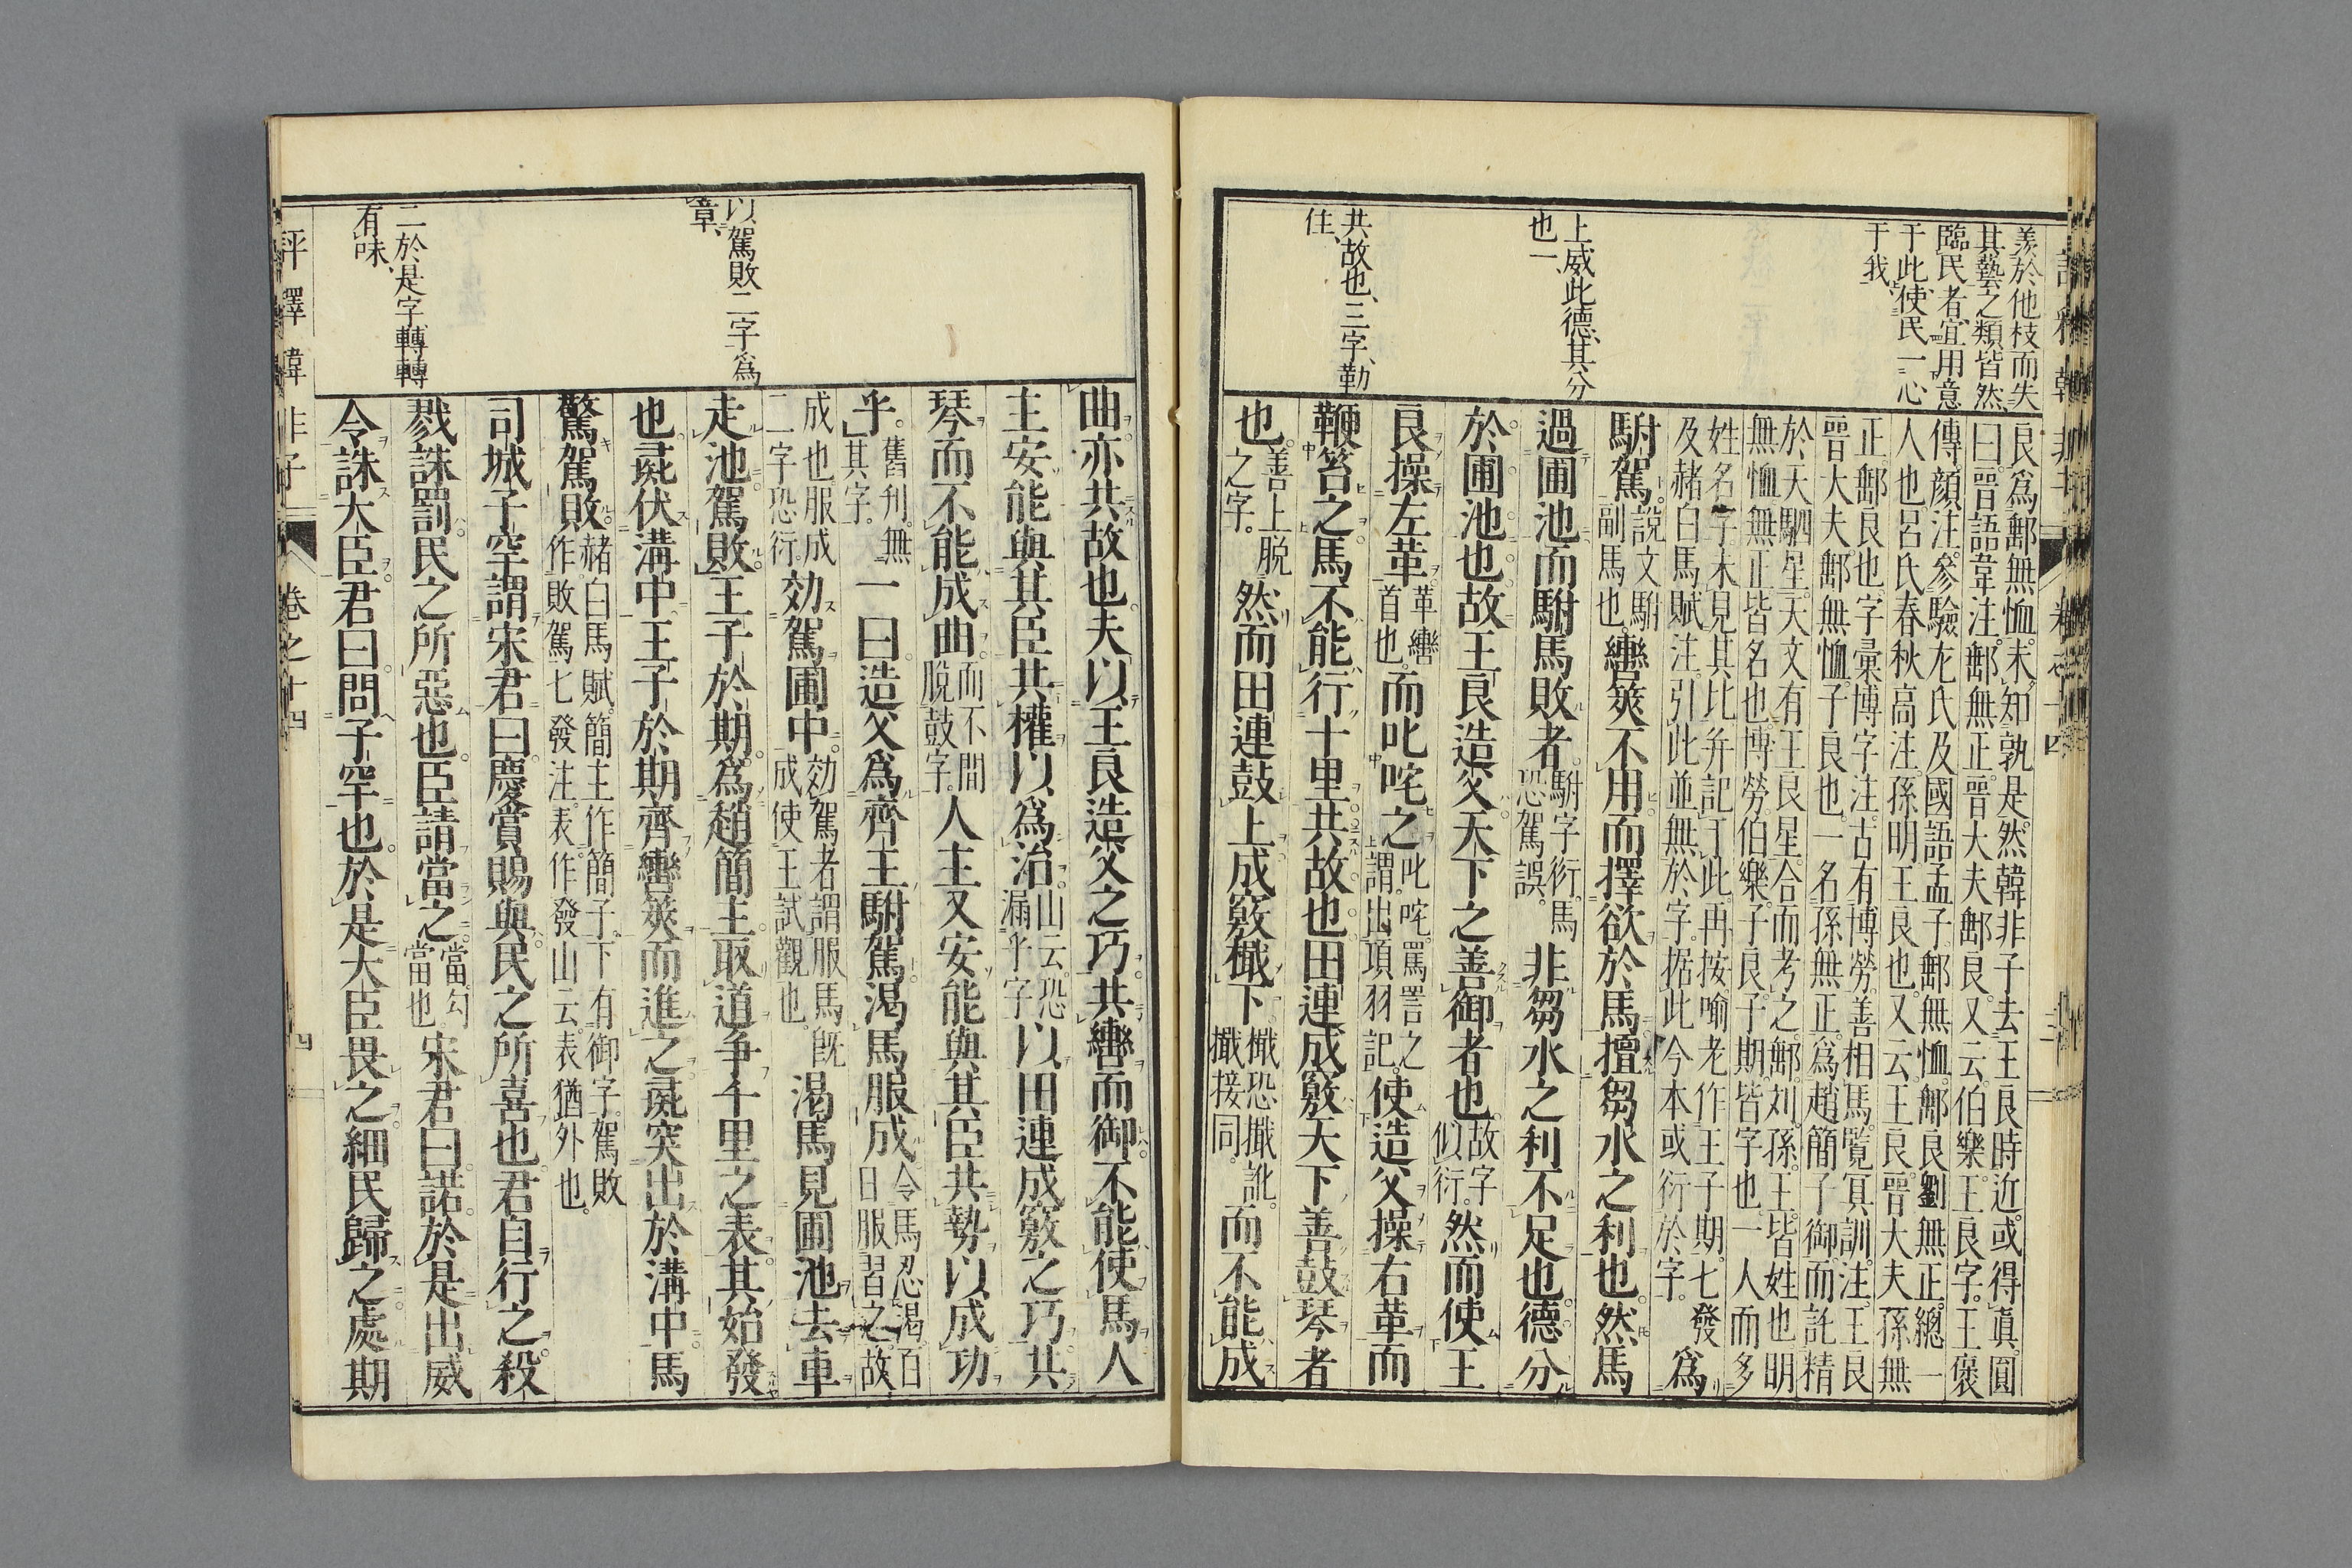 羨於他枝而失
其藝之類皆然、
臨民者、宜用意
于此、使民一心
于我、
上威此德、其分
也一、
共故也、三字、勒
住、
良爲郵無恤。未知孰是。然韓非子去王良時近。或得眞。圓
曰。晉語韋注。郵無正。晉大夫郵良。又云。伯樂。王良字。王褒
傳。顔注。參驗左氏及國語孟子。郵無恤。郵良。劉無正。總一
人也。呂氏春秋高注。孫明王良也。又云。王良。晉大夫孫無
正郵良也。字彙博字注。古有博勞。善相馬。覽冥訓。注。王良
晉大夫。郵無恤。子良也。一名孫無正。爲趙簡子御。而託精
於天駟星。天文有王良星。合而考之。郵。刘。孫。王。皆姓也。明
無恤無正。皆名也。博勞。伯樂。子良。子期。皆字也。一人而多
姓名字。未見其比。幷記于此。再按喻老作王子期。七發
及赭白馬賦注。引此並無於字。据此今本或衍於字。
爲
駙駕。說文。駙
副馬也。轡筴不用而擇欲於馬。擅芻水之利也。然馬
過圃池而駙馬敗者。駙字衍。馬
恐駕誤。非芻水之利不足也。德分
於圃池也。故王良造父天下之善御者也。故字
似衍。然而使王
良操左革。革轡
首也。而叱咤之。叱咤。罵詈之
謂。出項羽記。使造父操右革而
鞭笞之。馬不能行十里。共故也。田連成竅天下善鼓琴者
也。善上脫
之字。然而田連鼓上。成竅擑下。擑恐擮訛。
擮接同。而不能成
曲。亦共故也。夫以王良造父之巧。共轡而御。不能使馬。人
主安能與其臣共權以爲治。山云恐
漏乎字以田連成竅之巧。共
琴而不能成曲。而不間
脫鼓字。人主又安能與其臣共勢以成功
乎。舊刋。無
其字。一曰。造父爲齊王駙駕。渴馬服成。令馬忍渴。百
日服習之。故
成也。服成
二字恐衍。効駕圃中。効駕者謂服馬旣
成使王試觀也。渴馬見圃池。去車
走池。駕敗。王子於期。爲趙簡主。取道爭千里之表。其始發
也。彘伏溝中。王子於期齊轡筴而進之。彘突出於溝中。馬
驚駕敗。赭白馬賦。簡主作簡子。下有御字。駕敗
作敗駕。七發注。表作發。山云。表猶外也。
司城子罕謂宋君曰。慶賞賜與。民之所喜也。君自行之。殺
戮誅罰。民之所惡也。臣請當之。當。勾
當也。宋君曰。諾。於是出威
令。誅大臣。君曰。問子罕也。於是大臣畏之。細民歸之。處期
以駕敗二字爲
章、
二於是字、轉轉
有味、
評釋韓非子
卷之十四
四